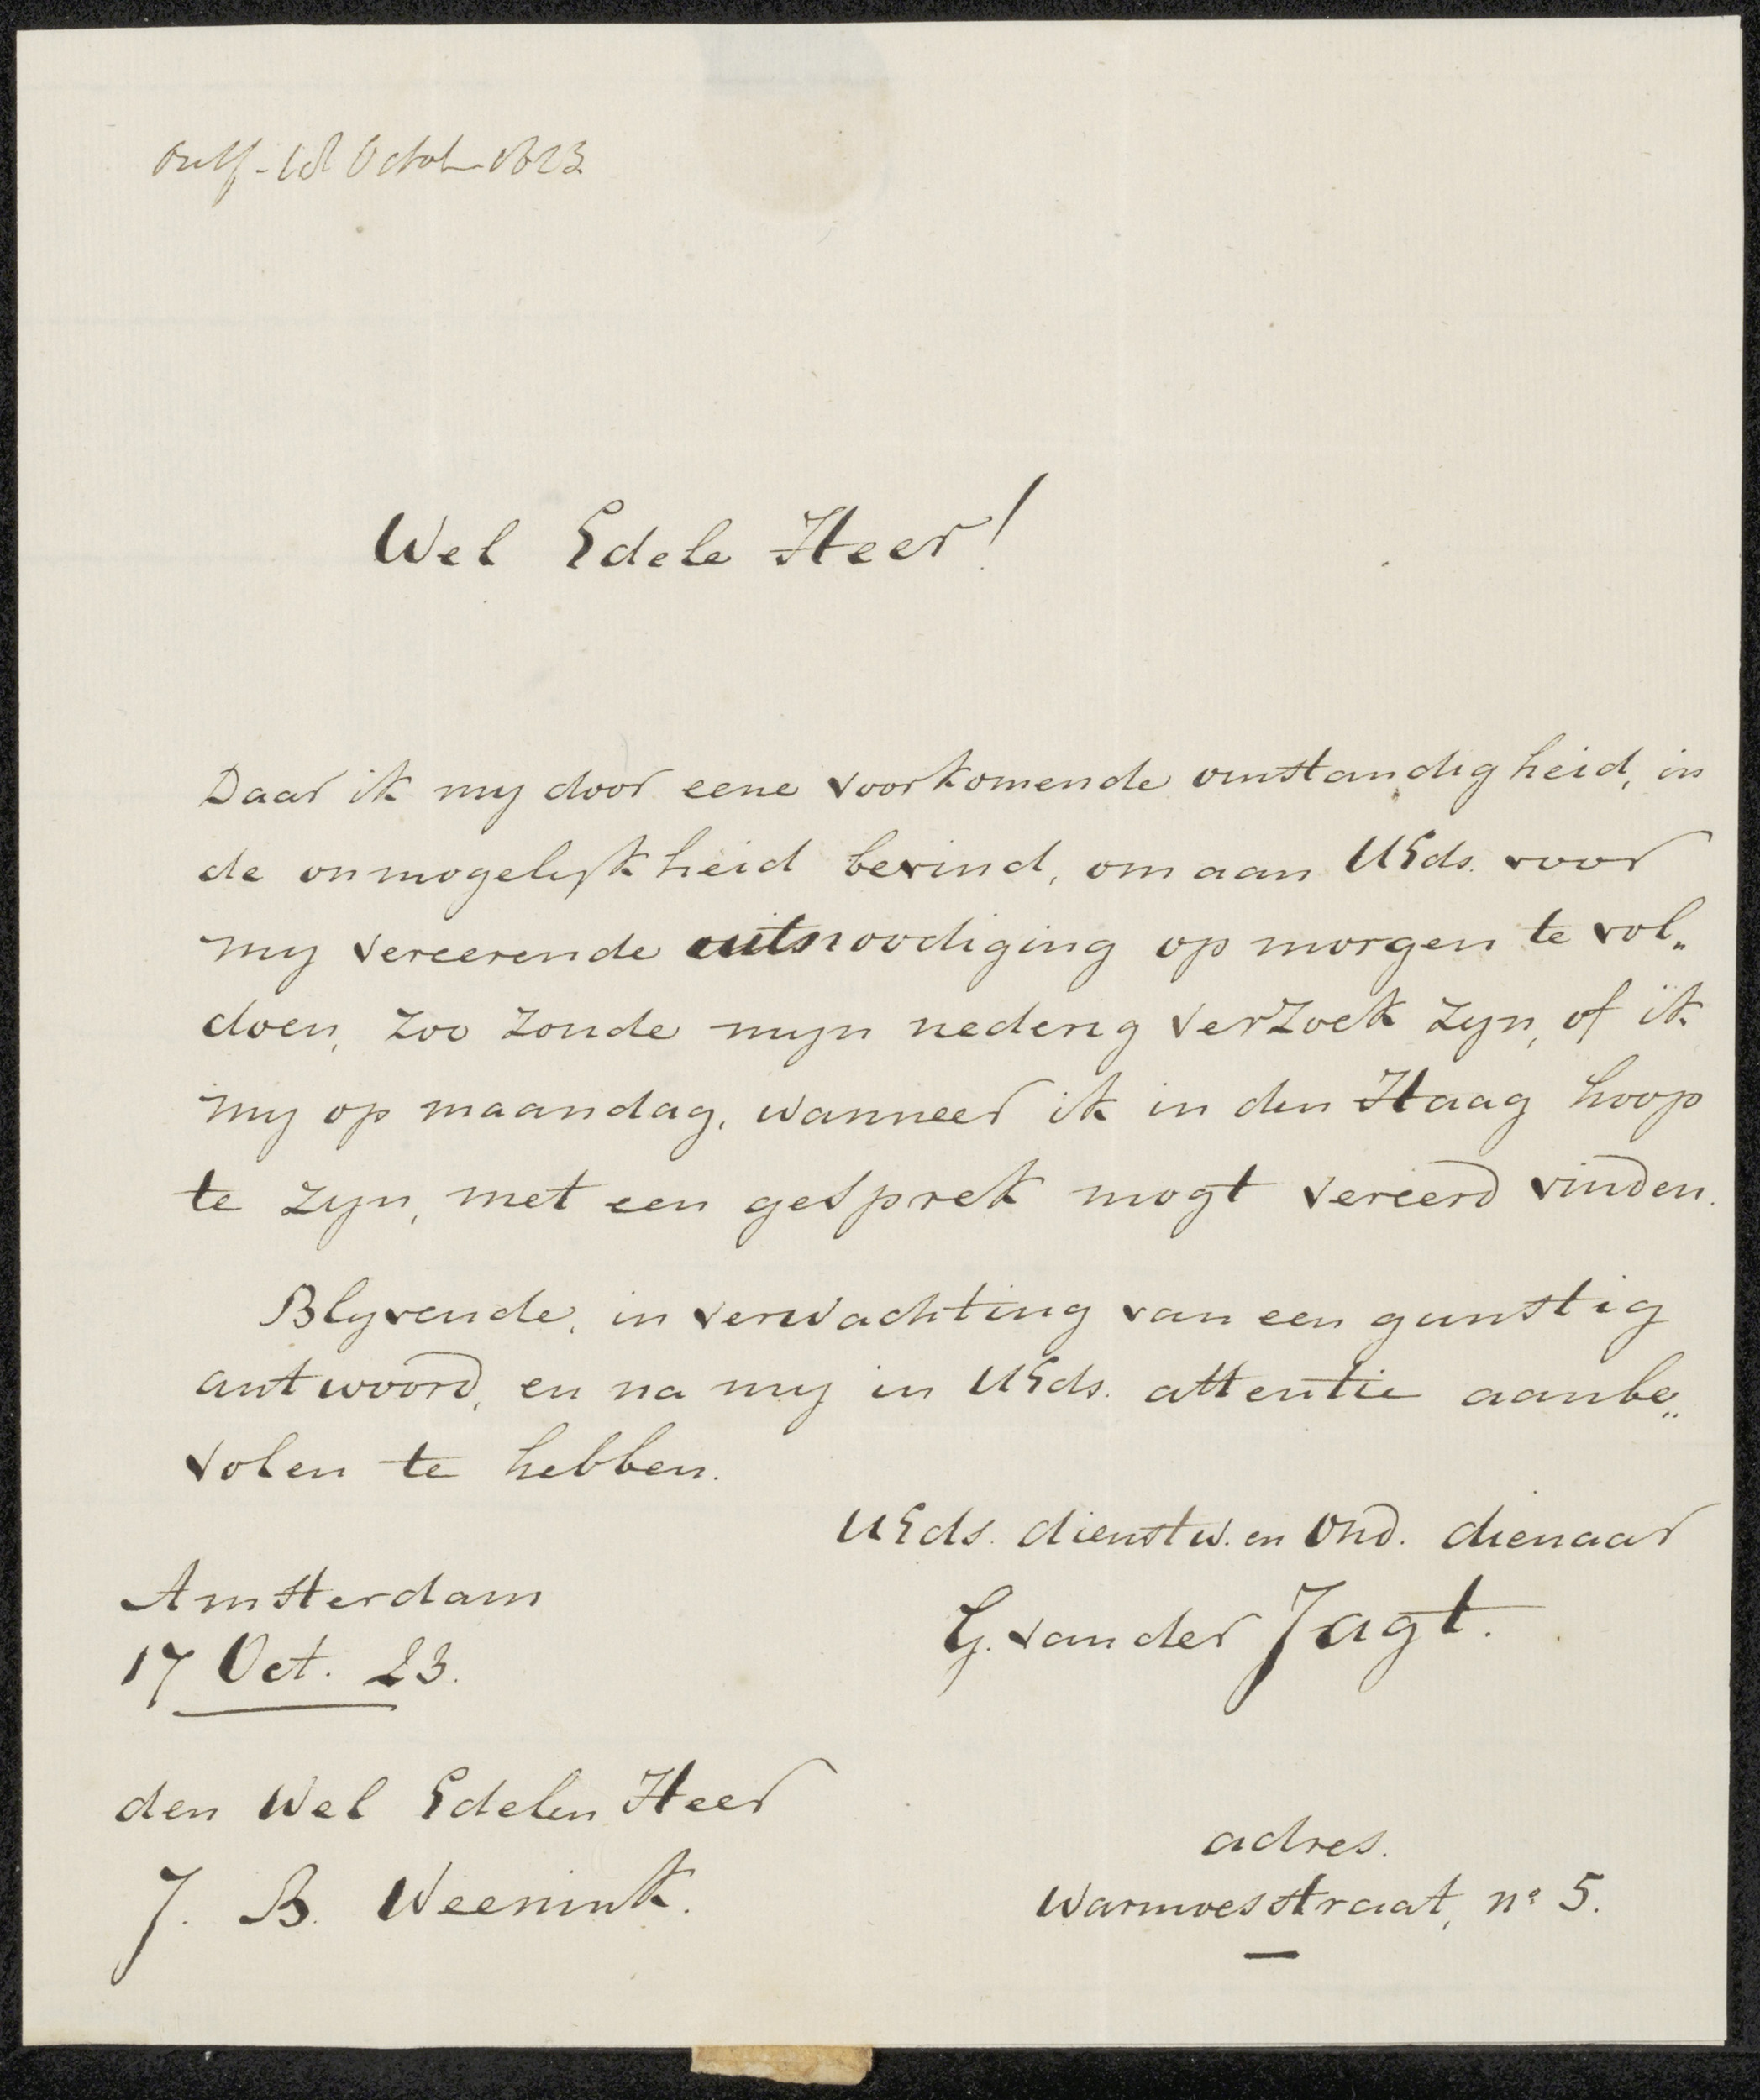 Ontf - 18 Octob 1823
Wel Edele Heer!
Daar ik my door eene voorkomende omstandigheid, in
de onmogelykheid bevind, om aan UEds. voor
my vereerende uitnoodiging op morgen te vol„
doen, zoo zoude myn nederig verzoek zyn, of ik
my op maandag, wanneer ik in den Haag hoop
te zyn, met een gesprek mogt vereerd vinden.
Blyvende, in verwachting van een gunstig
antwoord, en na my in UEds. attentie aanbe„
volen te hebben.
UEds. dienstw. en Ond. dienaar
G. van der Jagt.
Amsterdam
17 Oct. 23.
den Wel Edelen Heer
J. B. Weenink.
adres.
Warmoesstraat, no 5.